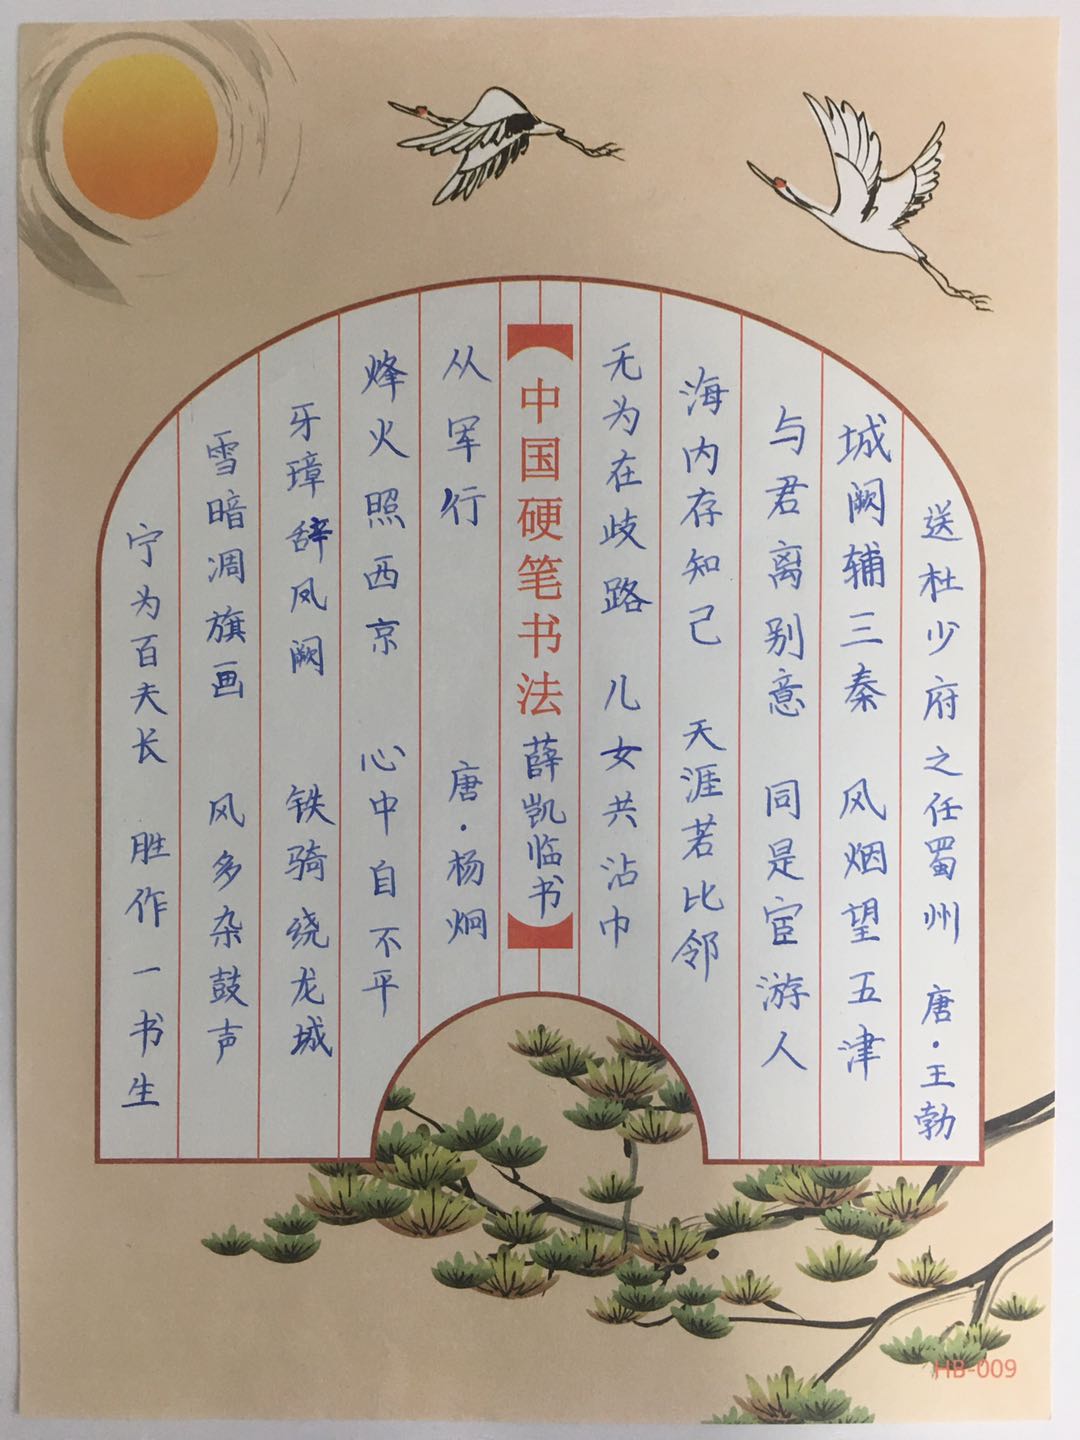 送杜少府之任蜀州 唐·王勃
城阙辅三秦 风烟望五津
与君离别意 同是宦游人
海内存知己 天涯若比邻
无为在歧路 儿女共沾巾
中国硬笔书法
薛凯临书
从军行 唐·杨炯
烽火照西京 心中自不平
牙璋辞凤阙 铁骑绕龙城
雪暗凋旗画 风多杂鼓声
宁为百夫长 胜作一书生
HB-009